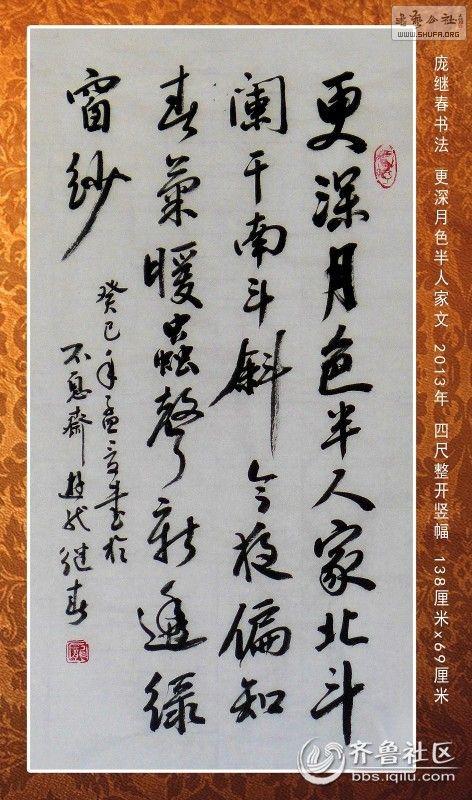 书艺公社
WWW.SHUFA.ORG
庞继春书法 更深月色半人家文 2013年 四尺整开竖幅 138厘米×69厘米
更深月色半人家北斗
阑干南斗斜今夜偏知
春氣暖蟲聲新透绿
窗纱
癸巳年孟夏书於
不息斋 继春
齐鲁社区
bbs.iqilu.com